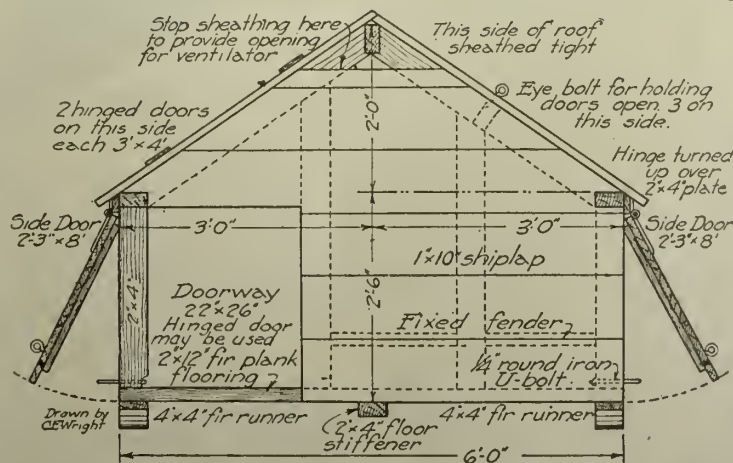 Stop sheathing here
to provide opening
for ventilator
This side of roof
sheathed tight
2 hinged doors
on this side
each 3'x4'
Eye bolt for holding
doors open. 3 on
this side.
2'-0"
Hinge turned
up over
2"x4" plate
Side Door
2'-3"x8'
3'-0"
3'-0"
Side Door
2'-3"x8'
2"x4"
1"x10" shiplap
2'-6"
Doorway
22"x26"
Hinged door
may be used
2"x12" fir plank
flooring
Fixed fender
1/4" round iron
U-bolt
Drawn by
C.E.Wright
4"x4" fir runner
2"x4" floor
stiffener
4"x4" fir runner
6'-0"